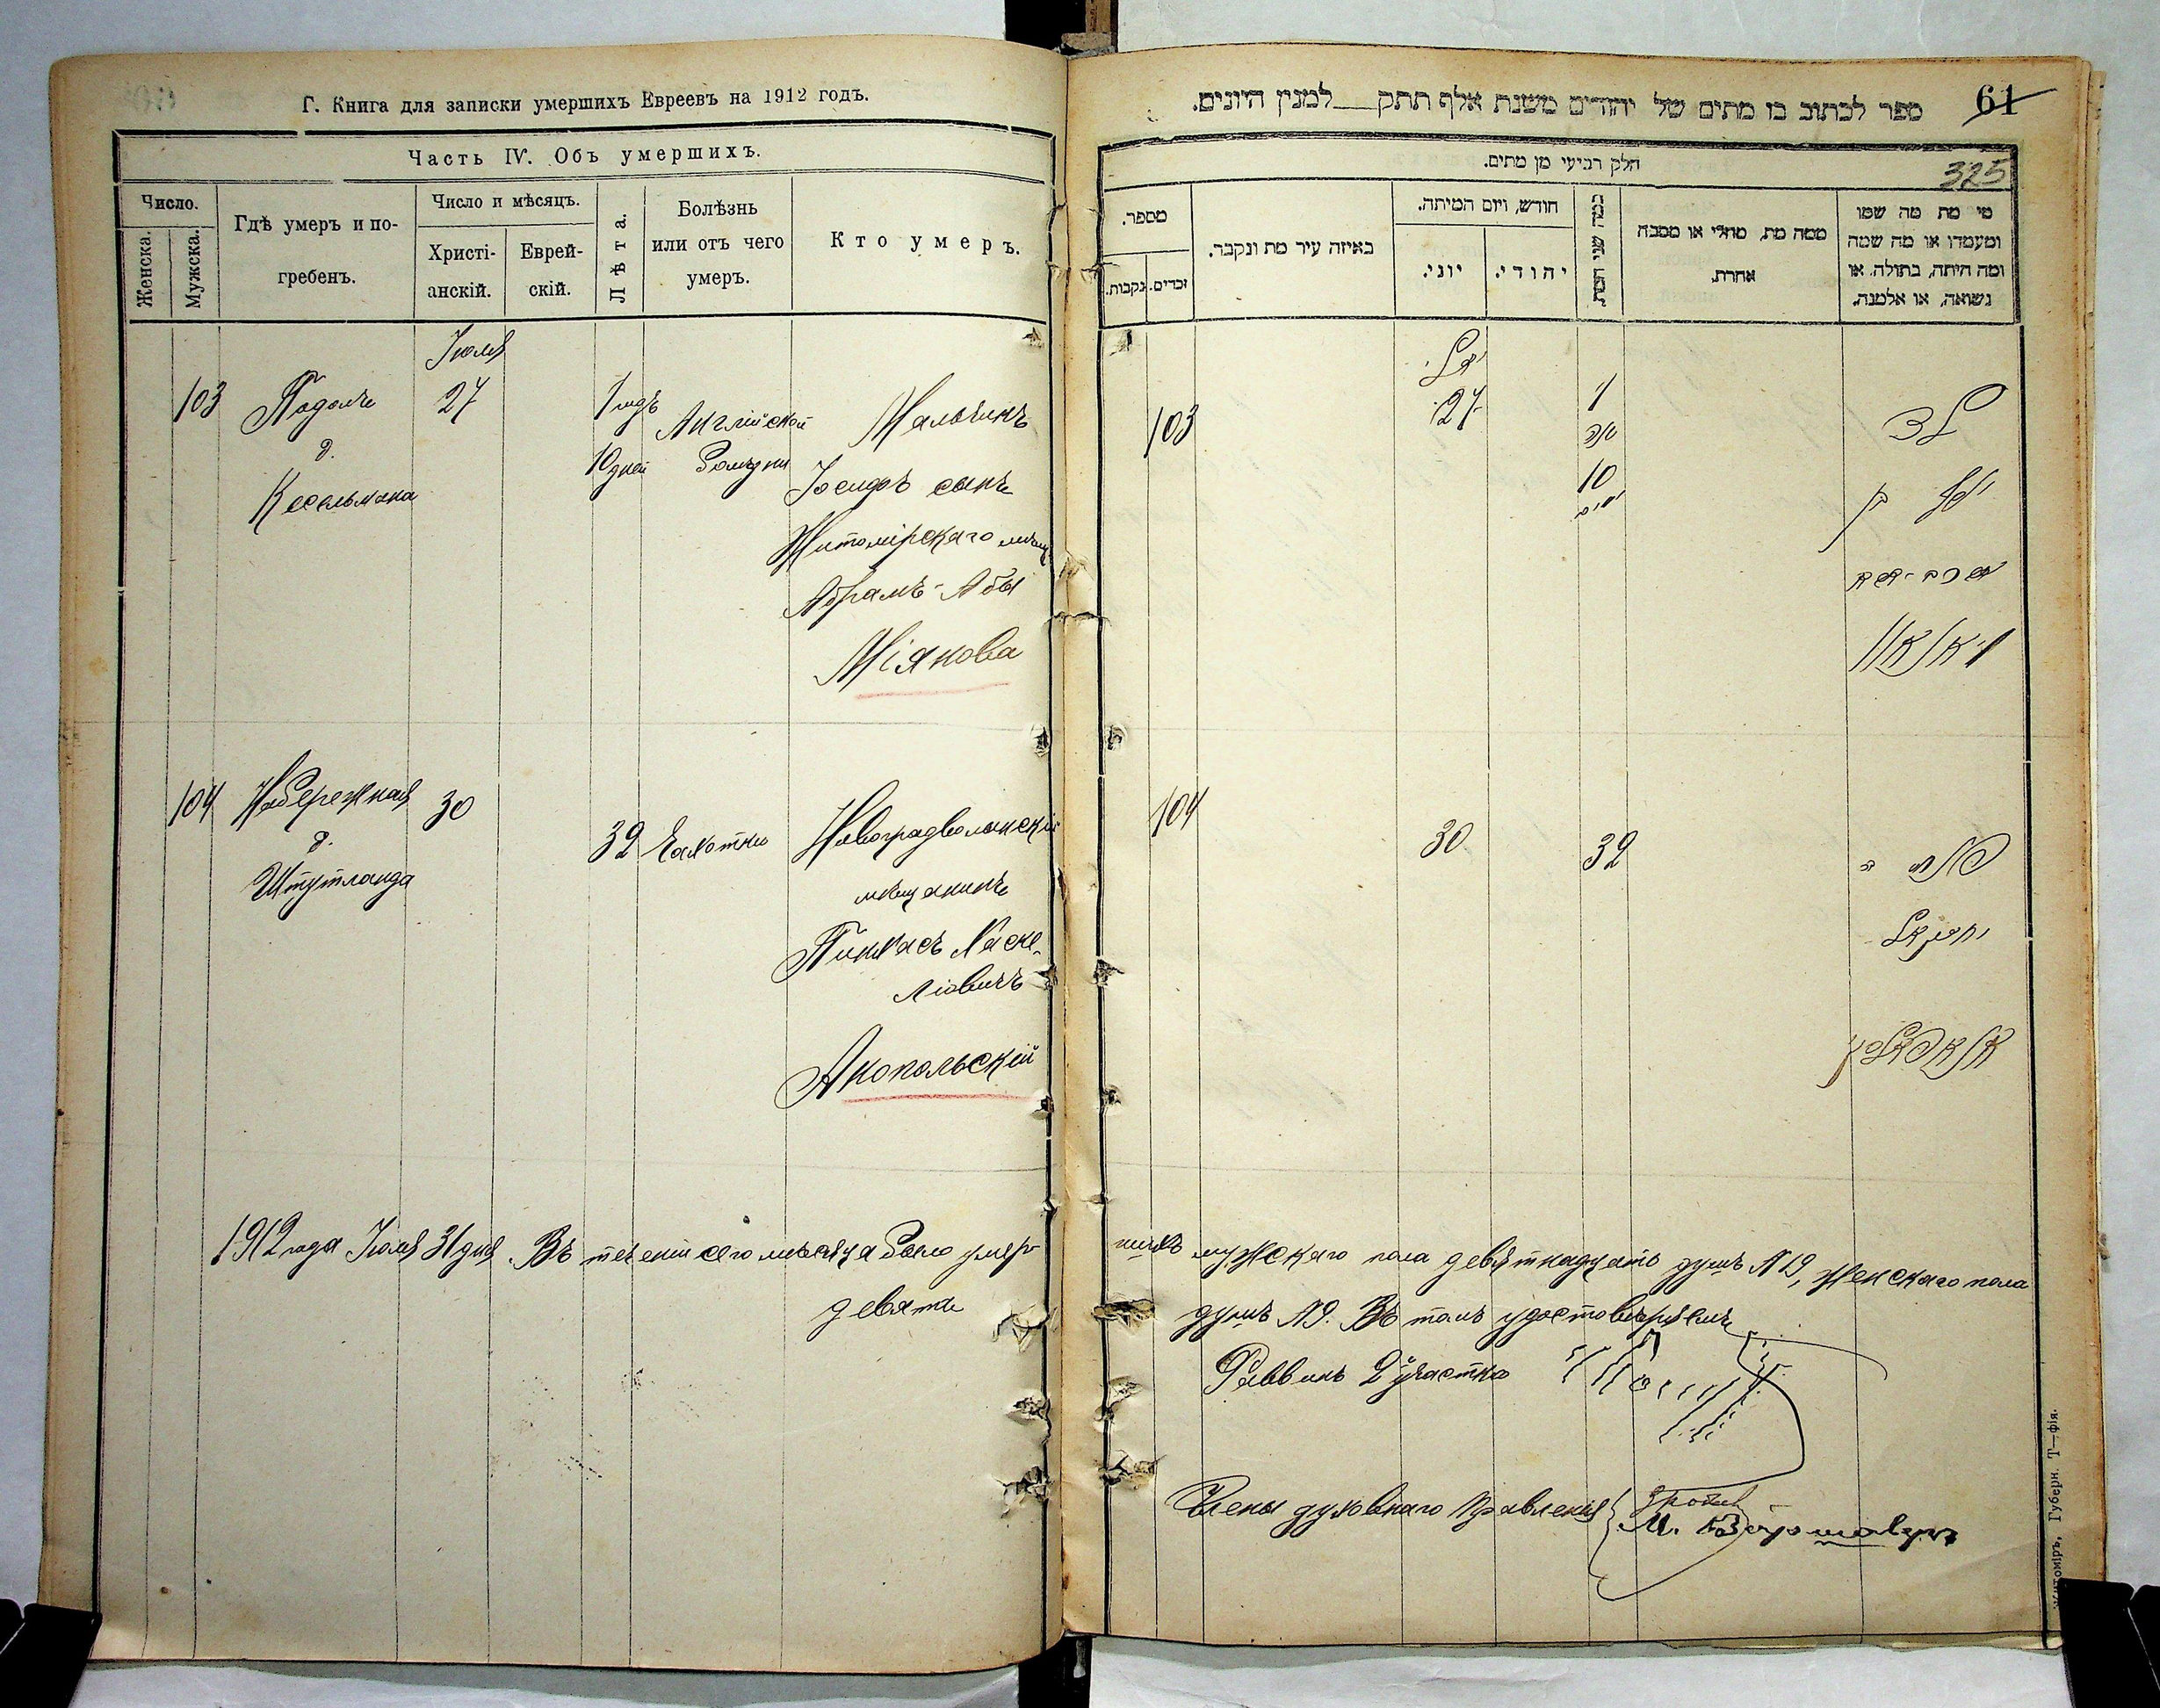 Г. Книга для записки умершихъ Евреевъ на 1912 годъ.
Часть IV. Объ умершихъ.
Число.
Женска.
Мужска.
Гдѣ умеръ и погребенъ.
Число и мѣсяцъ.
Христіанскій.
Еврейскій.
Лѣта.
Болѣзнь
или отъ чего
умеръ.
Кто умеръ.
Іюля
103 Подолъ 27 1 годъ Англійской Мальчикъ
д. 10 дней болѣзни Іосифъ сынъ
Кесельмана
Житомірскаго мѣщ.
Абрамъ-Абы
Міянова
104 Набережная 30 32 Чахотки Новоградволынскій
д. мѣщанинъ
Штутланда
Пинхасъ Хаске-
ліовичъ
Анопольскій
1912 года Іюля 31 дня. Въ теченіи сего мѣсяца было умер-
девять
ספר לכתוב בו מתים של יהודים משנת אלף תתק למנין היונים.
61
חלק רביעי מן מתים.
325
מספר.
נקבות.
זכרים.
באיזה עיר מת ונקבר.
חודש, ויום המיתה.
יוני.
יהודי.
כמה שני המת.
ממה מת, מחלי או מסבה
אחרת.
מי מת מה שמו
ומעמדו או מה שמה
ומה היתה, בתולה, או
נשואה, או אלמנה.
יול
103 27 1 ילד
10
ימים
יוסף בן
אברהם-אבא
104 30 32 פנחס ב
יחזקאל
אנאפאלסקי
шихъ мужскаго пола девятнадцать душъ №19, женскаго пола
душъ №9. Въ томъ удостовѣряемъ
Раввинъ 2 участка
Члены духовнаго правленія
М.
Житоміръ, Губерн. Т—фія.